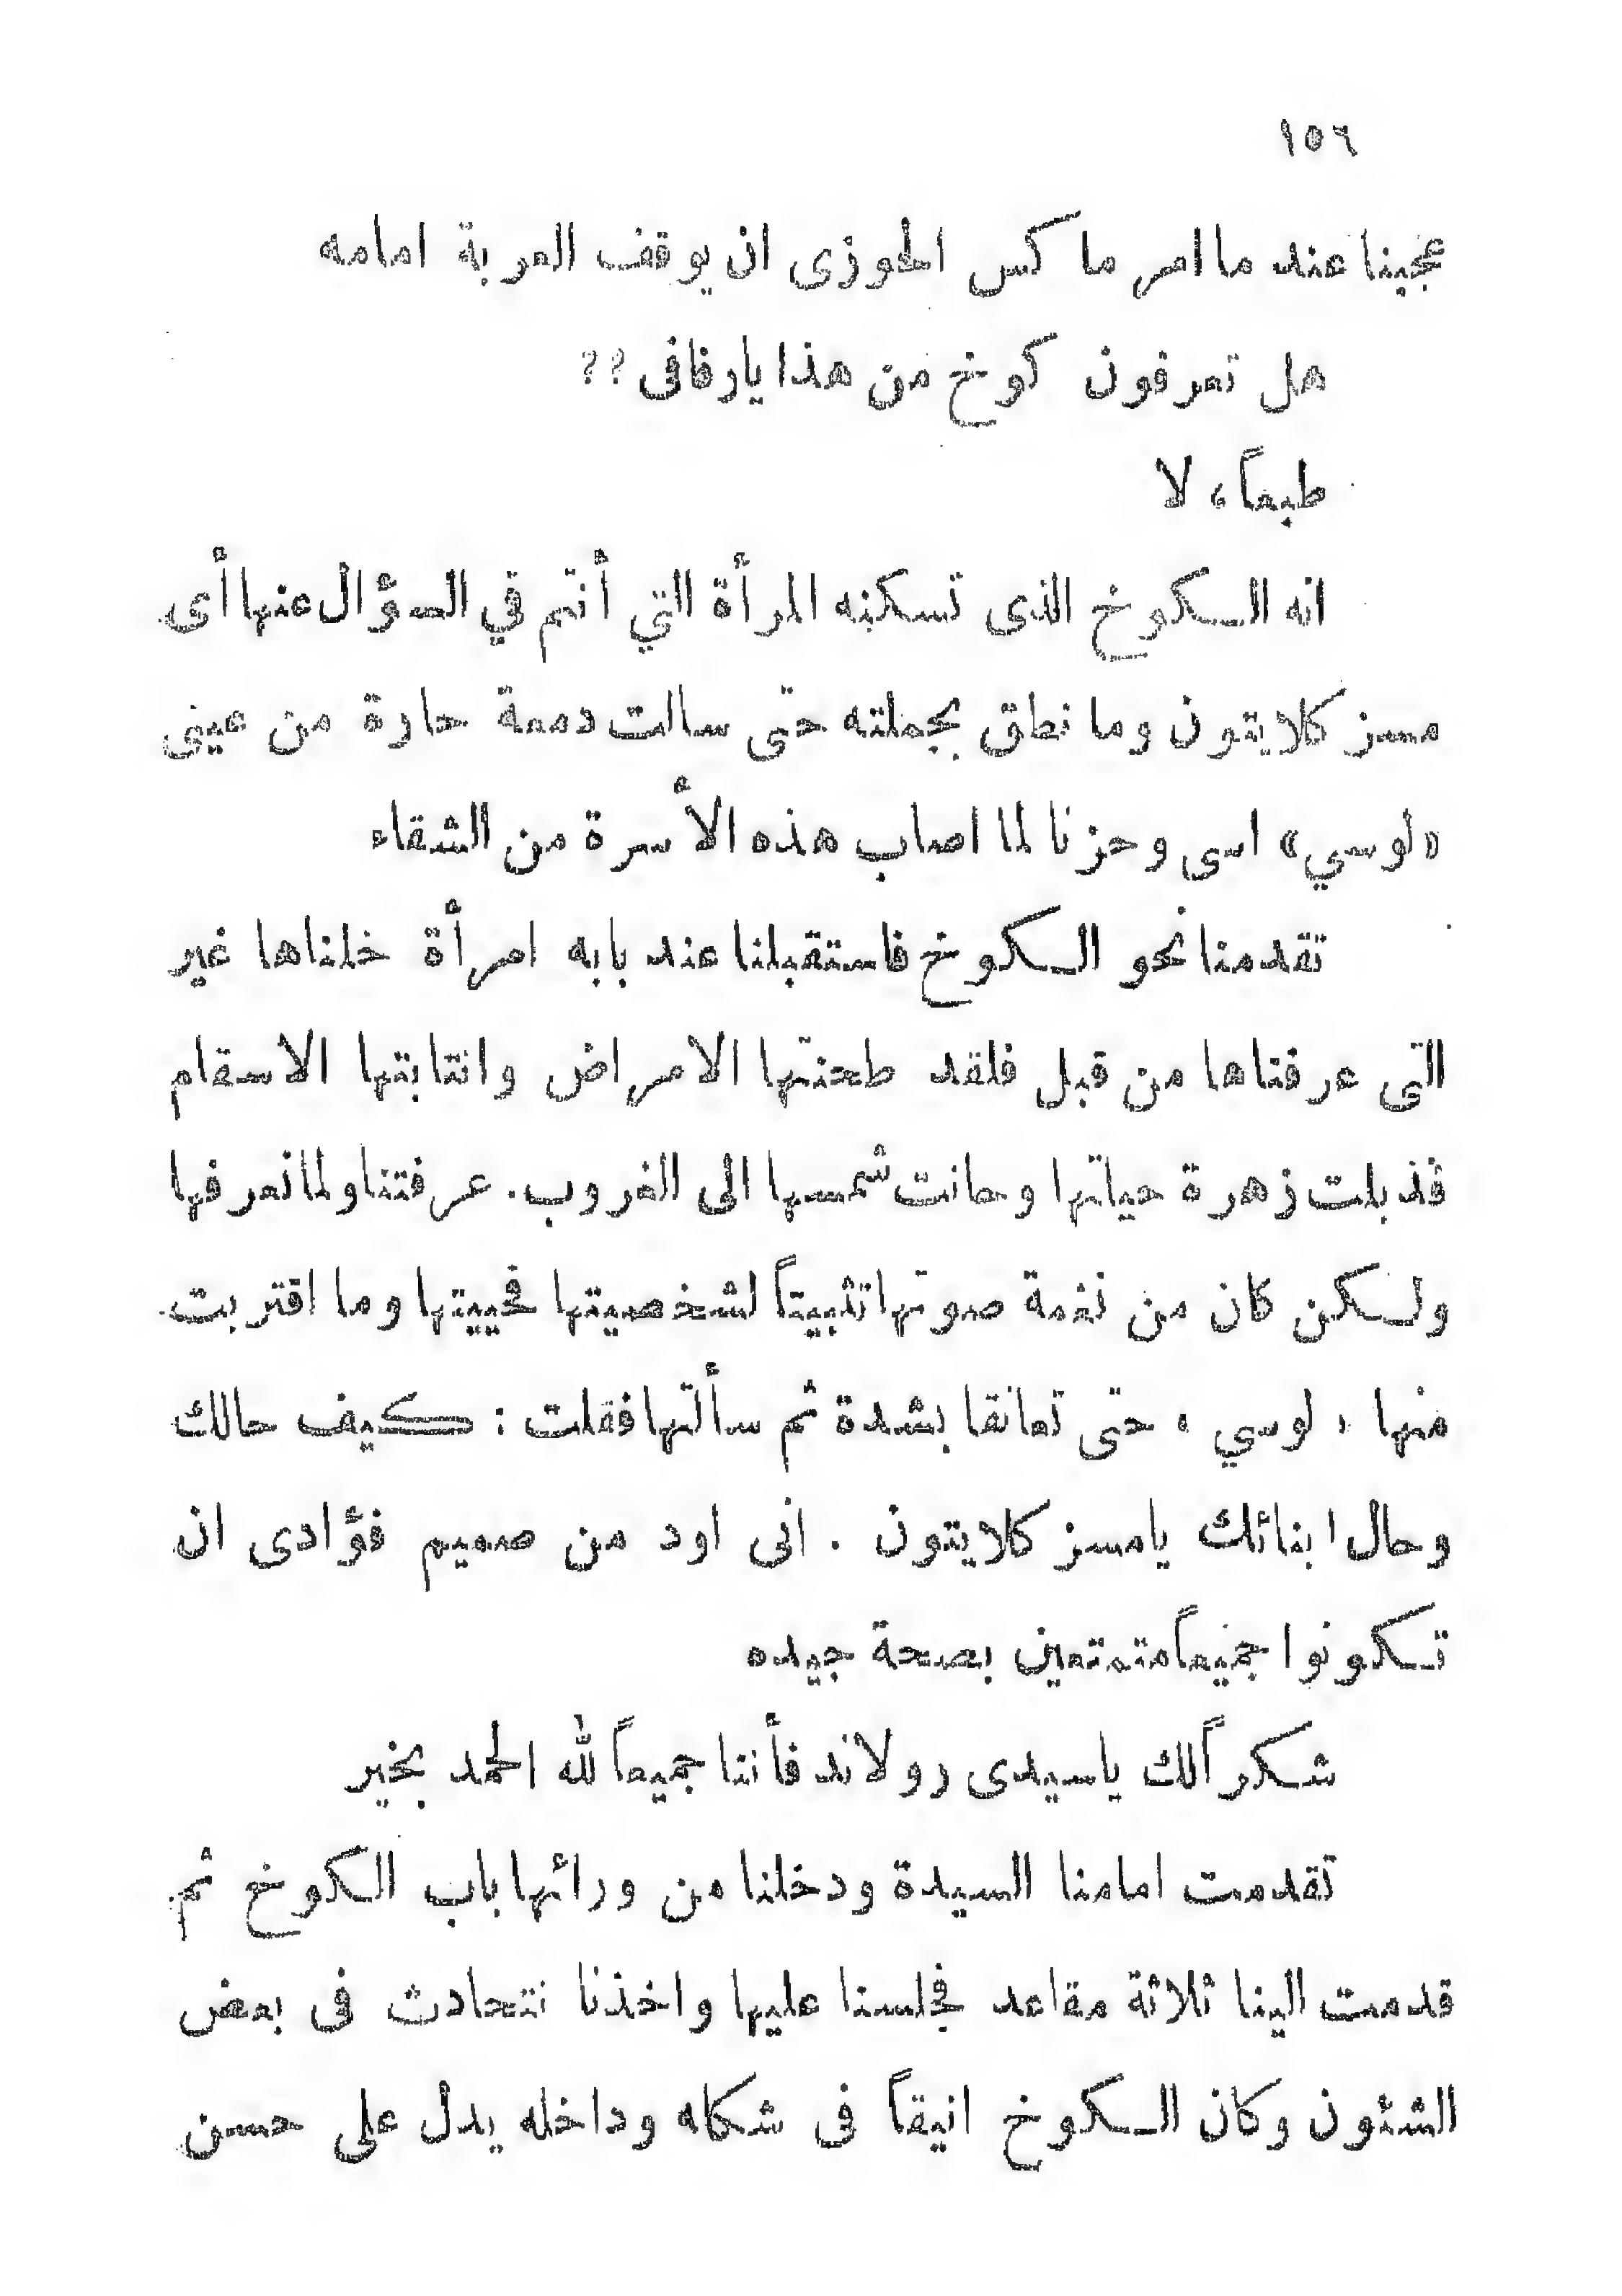 ١٥٦
عجبنا عند ما امر ماكس الحوذى ان يوقف العربة امامه
هل تعرفون كوخ من هذا يارفاقى ??
طبعاً، لا
انه الكوخ الذى تسكنه المرأة التي أنتم في السؤال عنها أى
مسز كلايتون وما نطق بجملته حتى سالت دمعة حارة من عينى
«لوسي» اسى وحزنا لما اصاب هذه الأسرة من الشقاء
تقدمنا نحو الكوخ فاستقبلنا عند بابه امرأة خلناها غير
التى عرفناها من قبل فلقد طحنتها الامراض وانتابتها الاسقام
فذبلت زهرة حياتها وحانت شمسها الى الغروب. عرفتنا ولما نعرفها
ولكن كان من نغمة صوتها تثبيتاً لشخصيتها فحييتها وما اقتربت
منها «لوسي» حتى تعانقا بشدة ثم سألتها فقلت : كيف حالك
وحال ابنائك يامسز كلايتون . انى اود من صميم فؤادى ان
تكونوا جميعاً متمتعين بصحة جيده
شكراً لك ياسيدى رولاند فأننا جميعاً لله الحمد بخير
تقدمت امامنا السيدة ودخلنا من ورائها باب الكوخ ثم
قدمت الينا ثلاثة مقاعد فجلسنا عليها واخذنا نتحادث فى بعض
الشئون وكان الكوخ انيقاً فى شكله وداخله يدل على حسن